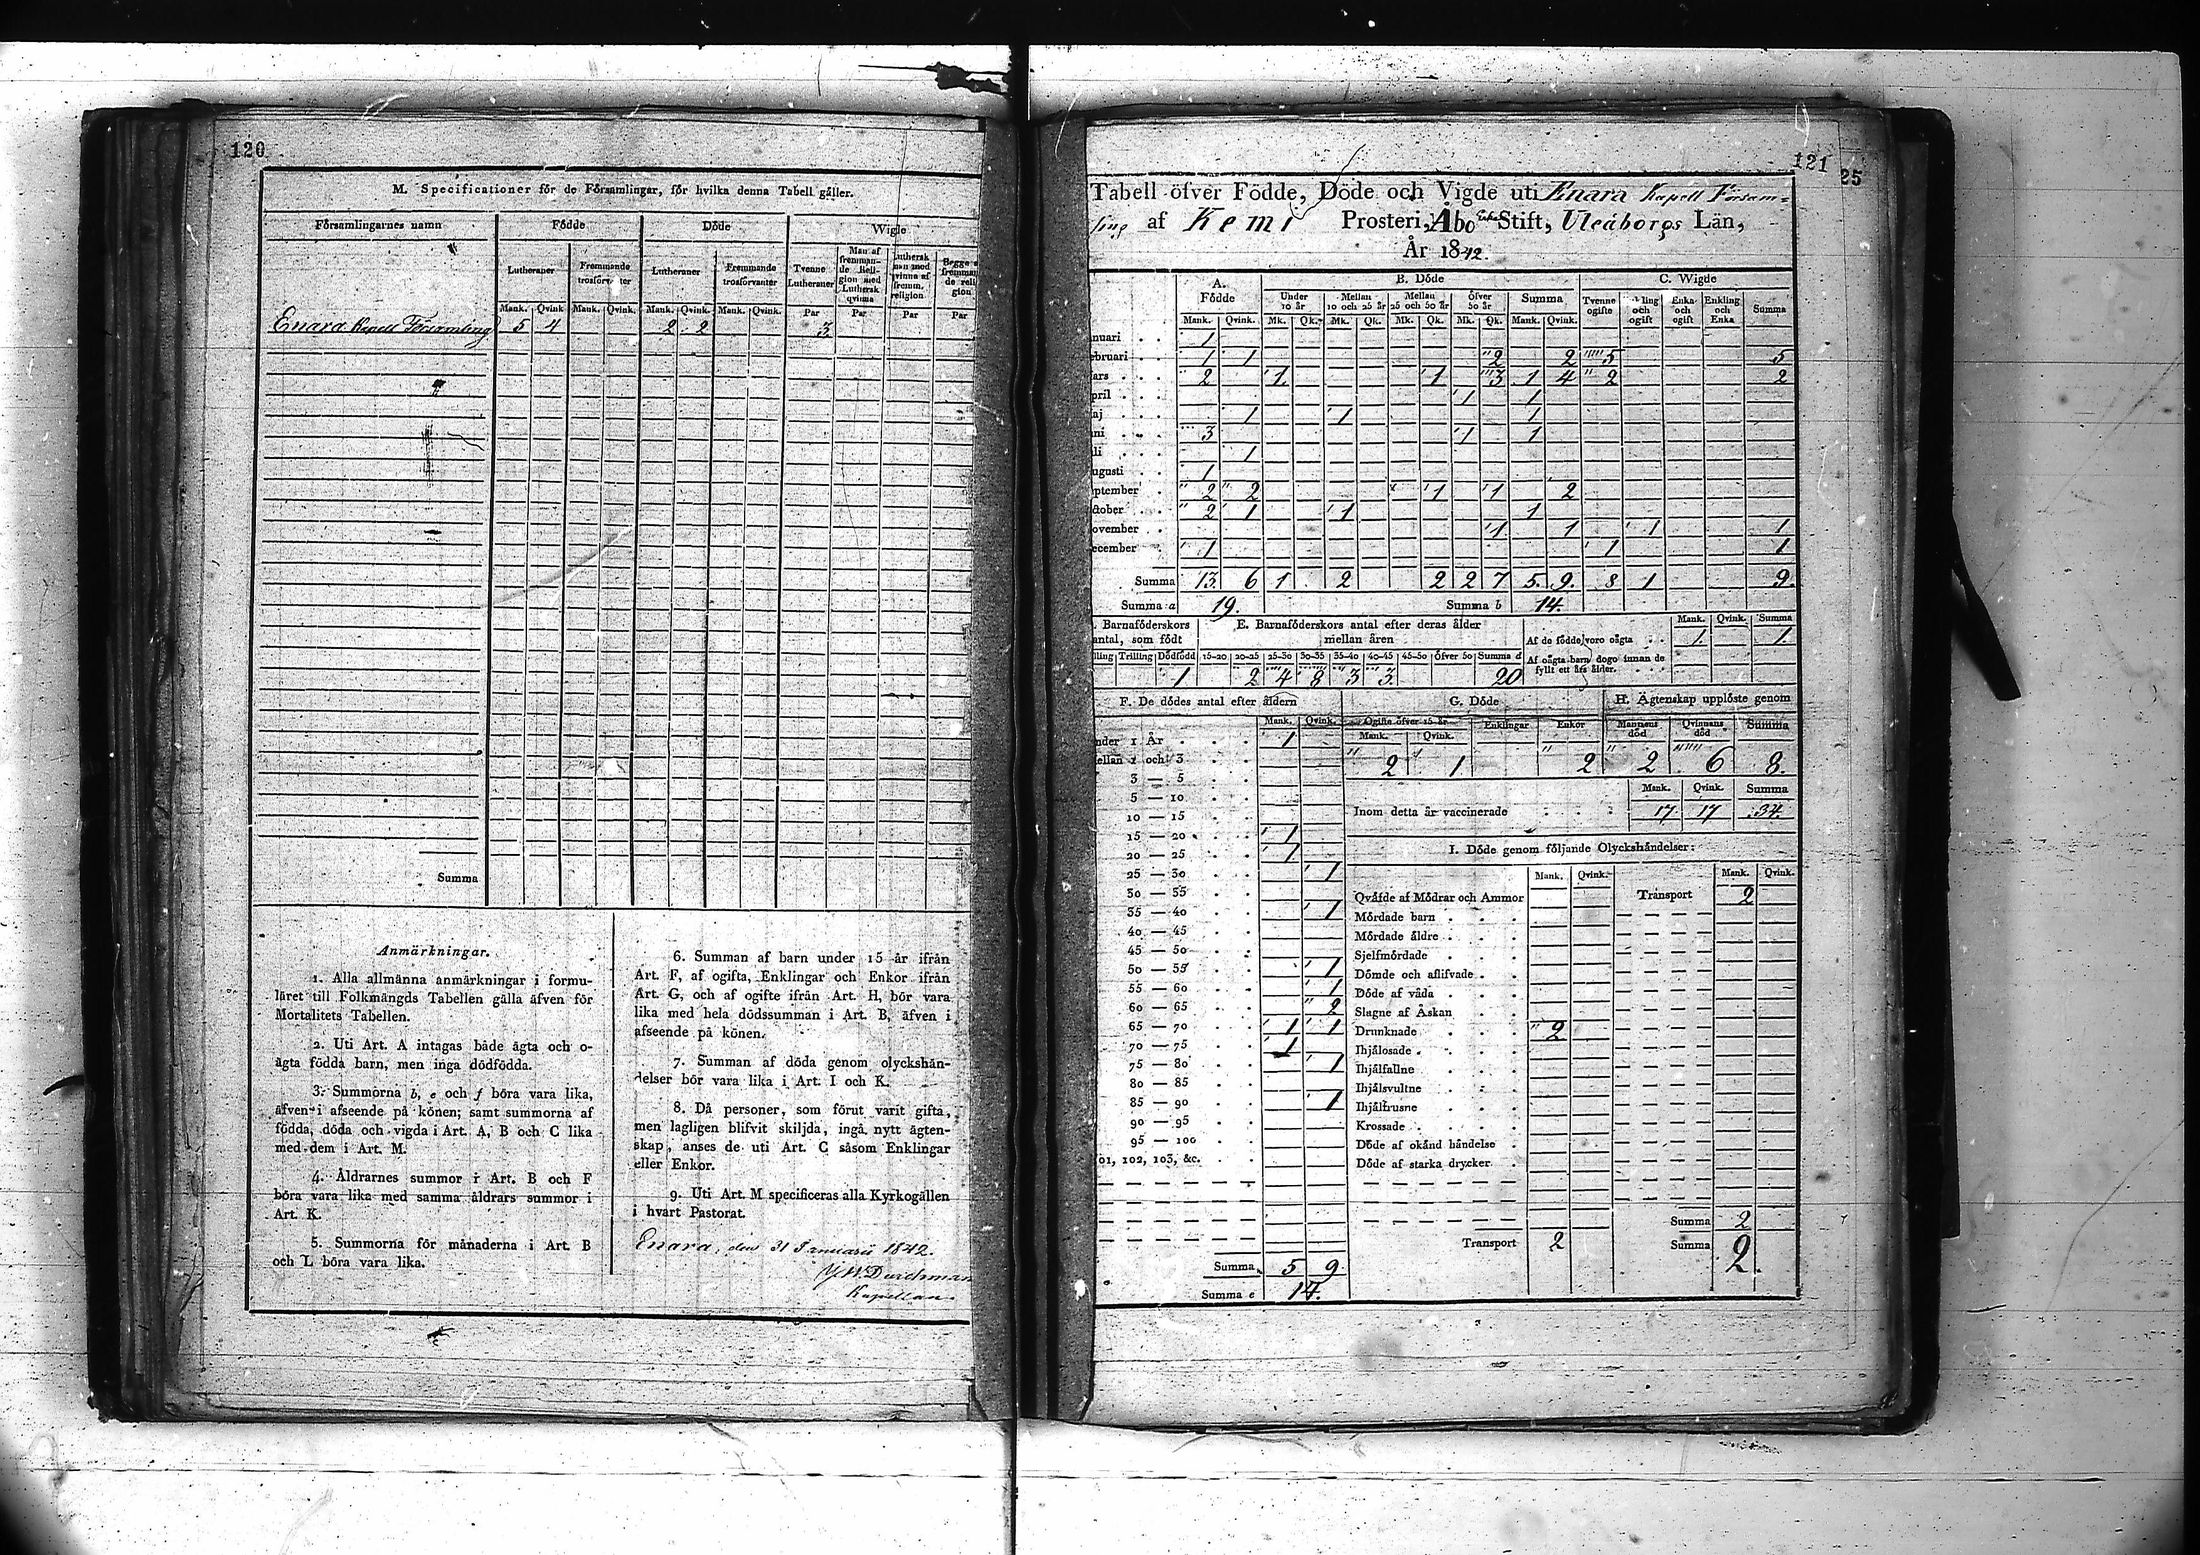 120
M. Specificationer för de Församlingar, för hvilka denna Tabell gäller.
Församlingarnes namn Födde Döde Wigle
Lutheraner Fremmande trosförvanter Lutheraner Fremmande trosförvanter Tvenne Lutheraner Man af fremmande Religion med Luthersk qvinna Luthersk man med qvinna af fremm. religion Begge af fremmande religion
Mank. Qvink. Mank. Qvink. Mank. Qvink. Mank. Qvink. Par Par Par Par
Enara Kapell Församling 5 4 2 2 3
Summa
Anmärkningar.
1. Alla allmänna anmärkningar i formu-
läret till Folkmängds Tabellen gälla äfven för
Mortalitets Tabellen.
2. Uti Art. A intagas både ägta och o-
ägta födda barn, men inga dödfödda.
3. Summorna b, e och f böra vara lika,
äfven i afseende på könen; samt summorna af
födda, döda och vigda i Art. A, B och C lika
med dem i Art. M.
4. Åldrarnes summor i Art. B och F
böra vara lika med samma åldrars summor i
Art. K.
5. Summorna för månaderna i Art. B
och L böra vara lika.
6. Summan af barn under 15 år ifrån
Art. F, af ogifta, Enklingar och Enkor ifrån
Art. G, och af ogifte ifrån Art. H, bör vara
lika med hela dödssumman i Art. B, äfven i
afseende på könen.
7. Summan af döda genom olyckshän-
delser bör vara lika i Art. I och K.
8. Då personer, som förut varit gifta,
men lagligen blifvit skiljda, ingå nytt ägten-
skap, anses de uti Art. C såsom Enklingar
eller Enkor.
9. Uti Art. M specificeras alla Kyrkogällen
i hvart Pastorat.
Enara, den 31 Januarii 1842.
Durchman
Kapellan.
121
25
Tabell öfver Födde, Döde och Vigde uti Enara Kapell Försam=
ling af Kemi Prosteri, Åbo Stift, Uleåborgs Län,
År 1842.
A. Födde B. Döde C. Wigde
Under 10 år Mellan 10 och 25 år Mellan 25 och 50 år Öfver 50 år Summa Tvenne ogifte kling och ogift Enka och ogift Enkling och Enka Summa
Mank. Qvink. Mk. Qk. Mk. Qk. Mk. Qk. Mk. Qk. Mank. Qvink.
nuari 1
ebruari 1 1 2 2 5 5
ars 2 1 1 3 1 4 2 2
pril 1 1
aj 1 1 1
ni 3 1 1
li 1
ugusti 1
eptember 2 2 1 1 2
ctober 2 1 1 1
ovember 1 1 1 1
ecember 1 1 1
Summa 13 6 1 2 2 2 7 5 9 8 1 9.
Summa a 19. Summa b 14.
Barnaföderskors antal, som födt E. Barnaföderskors antal efter deras ålder mellan åren Mank. Qvink. Summa
Af de födde voro oägta 1 1.
lling Trilling Dödfödd 15-20 20-25 25-30 30-35 35-40 40-45 45-50 Öfver 50 Summa d
Af oägta barn dogo innan de fyllt ett års ålder.
1 2 4 8 3 3 20
F. De dödes antal efter åldern G. Döde H. Ägtenskap upplöste genom
Mank. Qvink. Ogifte öfver 15 år Enklingar Enkor Mannens död Qvinnans död Summa
Mank. Qvink.
nder 1 År 1
ellan 1 och 3
3 — 5
5 — 10
10 — 15
15 — 20 1
20 — 25 1
25 — 30 1
30 — 35
35 — 40 1
40 — 45
45 — 50
50 — 55 1
55 — 60 1
60 — 65 2
65 — 70 1 1
70 — 75 1
75 — 80 1
80 — 85
85 — 90 1
90 — 95
95 — 100
01, 102, 103, &c.
Summa 5 9
Summa e 14.
2 1 2 2 6 8.
Mank. Qvink. Summa
Inom detta år vaccinerade 17 17 34.
I. Döde genom följande Olyckshändelser:
Mank. Qvink. Mank. Qvink.
Qväfde af Mödrar och Ammor Transport 2
Mördade barn
Mördade äldre
Sjelfmördade
Dömde och aflifvade
Döde af våda
Slagne af Åskan
Drunknade 2
Ihjälosade
Ihjälfallne
Ihjälsvultne
Ihjälfrusne
Krossade
Döde af okänd händelse
Döde af starka drycker
Summa 2
Transport 2 Summa 2.